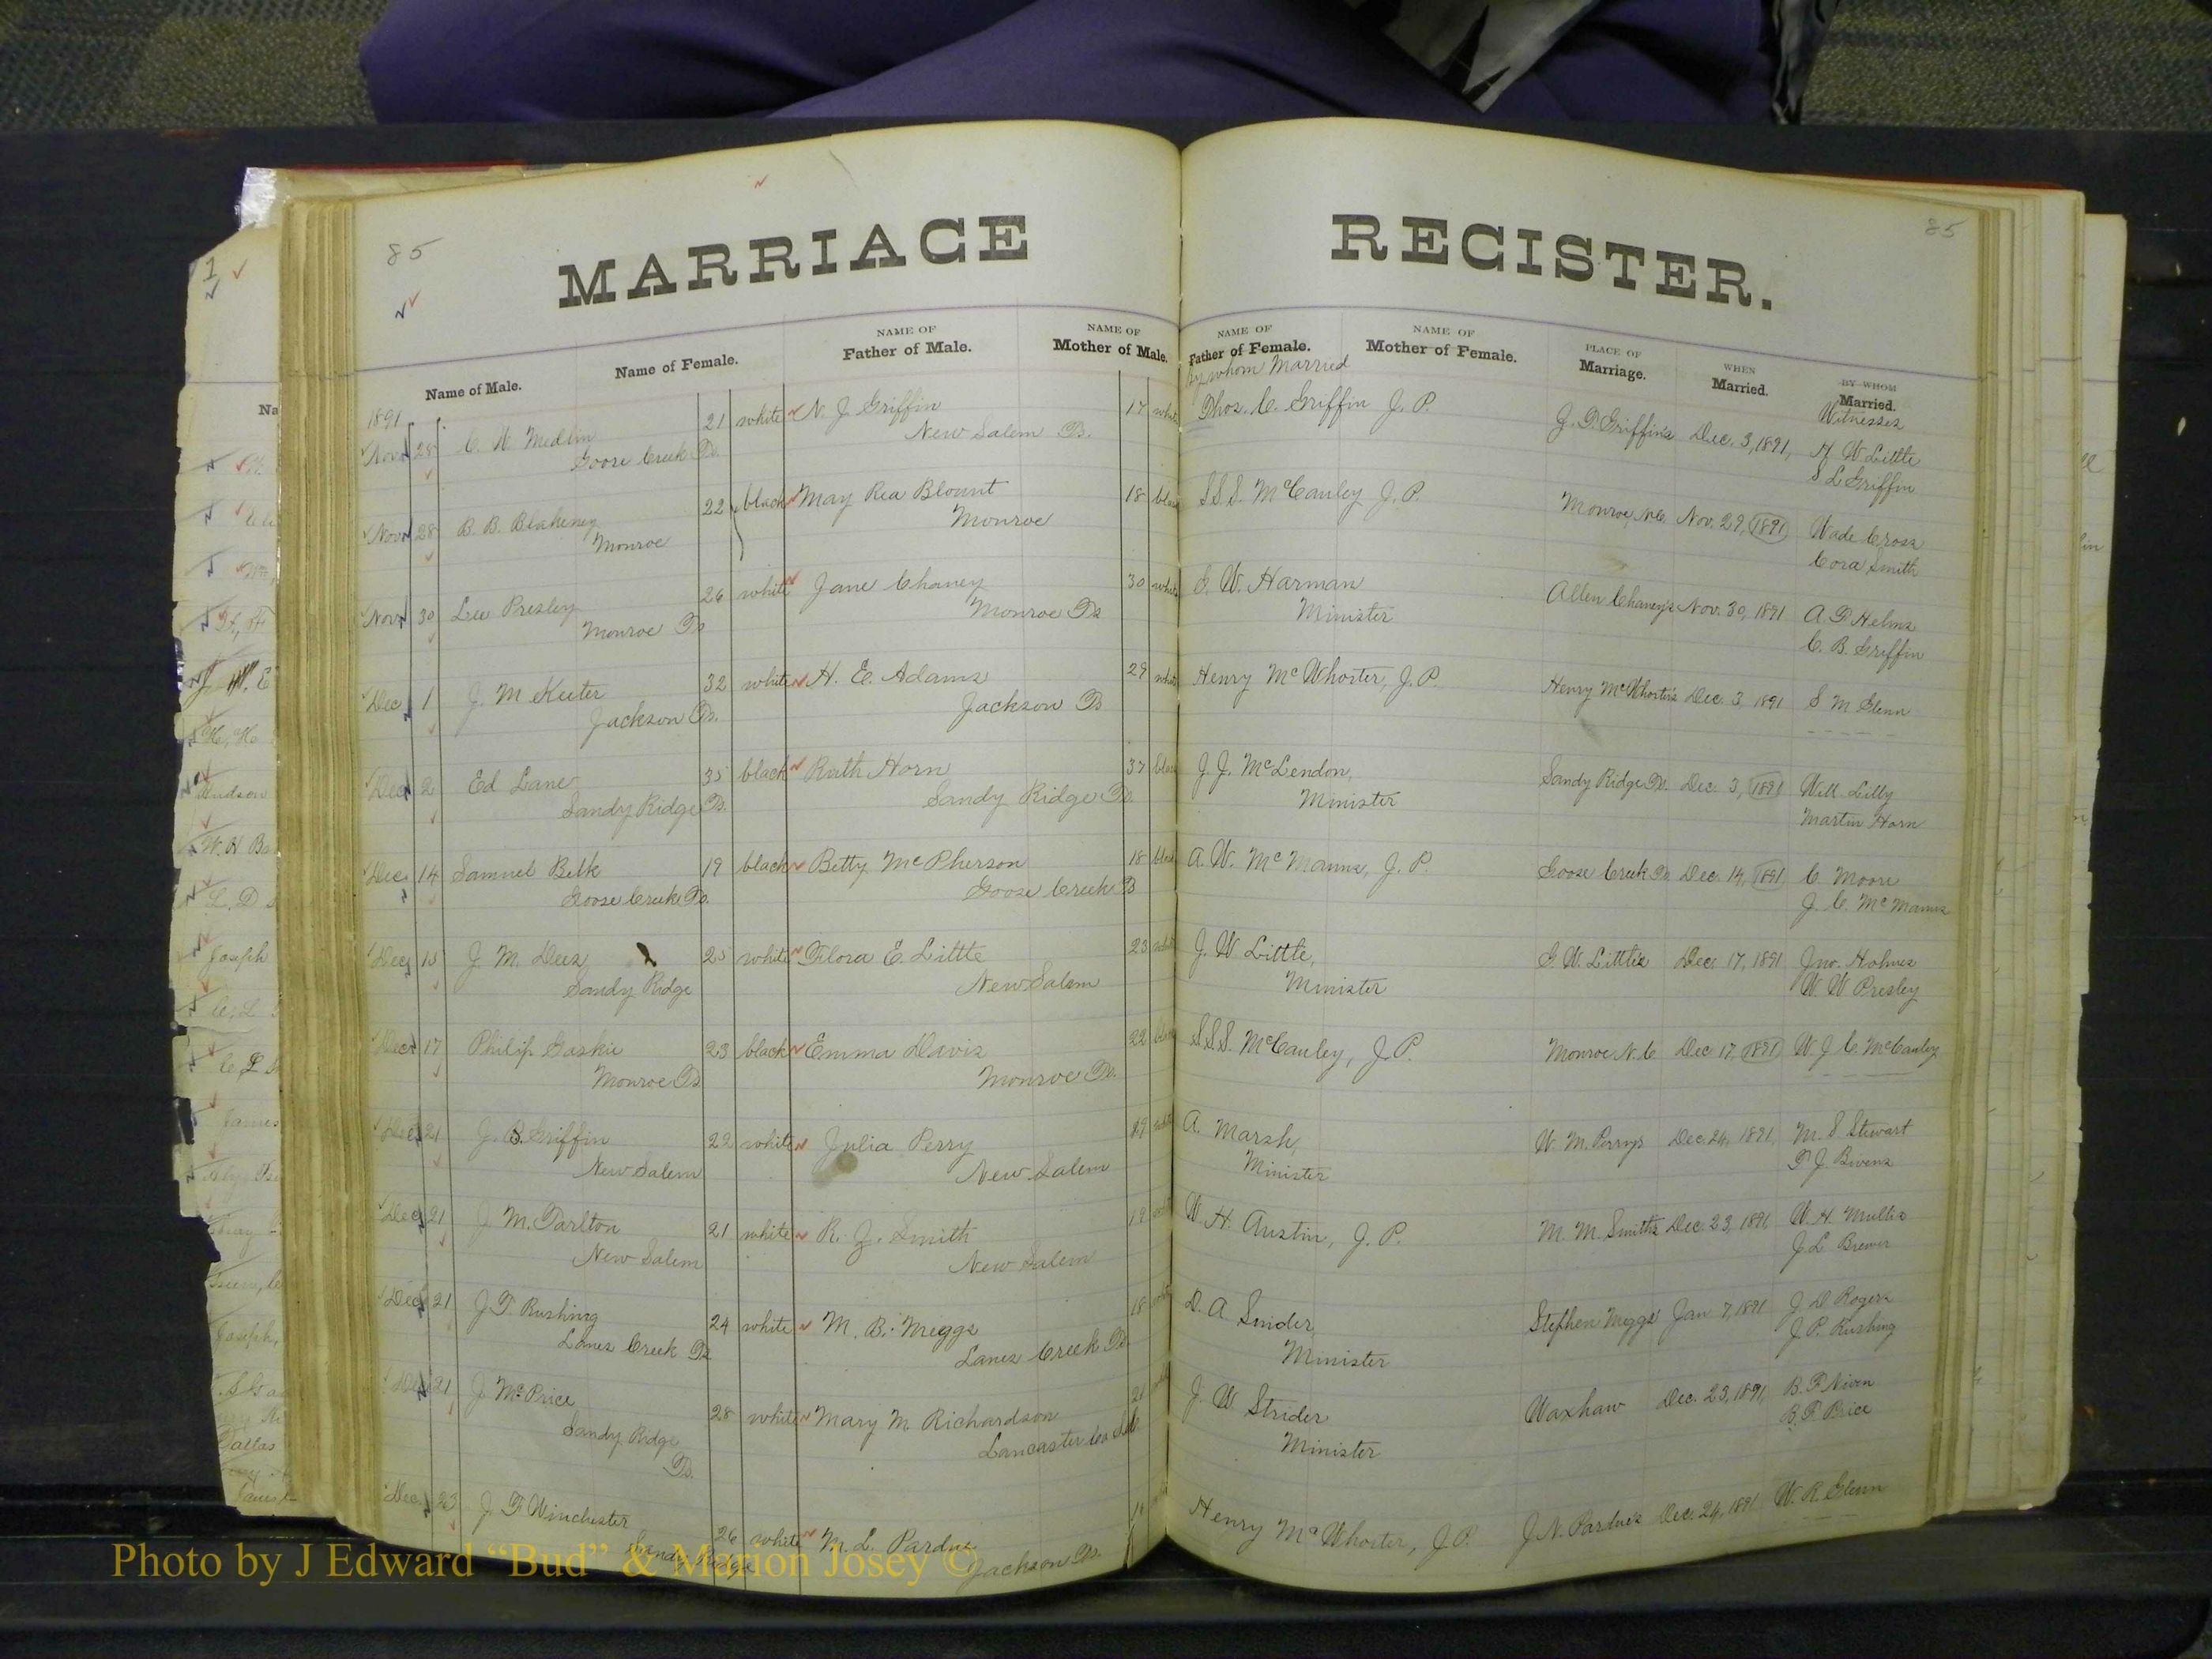 85
MARRIAGE REGISTER.
85
Name of Male.
Name of Female.
NAME OF
Father of Male.
NAME OF
Mother of Male.
NAME OF
Father of Female.
by whom Married
NAME OF
Mother of Female.
PLACE OF
Marriage.
WHEN
Married.
BY WHOM
Married.
Witnesses
1891
Nov 28 C. W. Medlin 21 white N. J. Griffin 17 white Thos. C. Griffin J. P. J. D. Griffin's Dec. 3, 1891, H. W. Little
Goose Creek Ts. New Salem Ts. S L Griffin
Nov 28 B. B. Blakeney 22 black May Rea Blount 18 black S.S.S. McCauley J. P. Monroe, N.C. Nov. 29, 1891 Wade Cross
Monroe Monroe Cora Smith
Nov 30 Lee Presley 26 white Jane Chaney 30 white E. W. Harman Allen Chaney's Nov. 30, 1891 A. D Helms
Monroe Ts Monroe Ts Minister C. B. Griffin
Dec 1 J. M Keeter 32 white H. E. Adams 29 white Henry McWhorter, J. P. Henry McWhorter's Dec. 3, 1891 S M Glenn
Jackson Ts. Jackson Ts
Dec 2 Ed Lane 35 black Ruth Horn 37 black J. J. McLendon, Sandy Ridge Ts. Dec. 3, 1891 Will Lilly
Sandy Ridge Ts. Sandy Ridge Ts. Minister Martin Horn
Dec. 14 Samuel Belk 19 black Betty McPherson 18 black A. W. McManus, J. P. Goose Creek Ts Dec. 14, 1891, C. Moore
Goose Creek Ts. Goose Creek Ts J. C. McManus
Dec 15 J. M. Dees 25 white Flora E. Little 23 white J. W Little, G. W. Little's Dec. 17, 1891 Jno. Holmes
Sandy Ridge New Salem Minister W W Presley
Dec 17 Philip Gaskie 23 black Emma Davis 22 black S.S.S. McCauley, J. P. Monroe N. C Dec 17, 1891 W. J. C. McCauley
Monroe Ts Monroe Ts.
Dec 21 J. B. Griffin 22 white Julia Perry 19 white A. Marsh, W. M. Perry's Dec. 24, 1891, M. S. Stewart
New Salem New Salem Minister T. J. Bivens
Dec 21 J. M. Tarlton 21 white R. J. Smith 19 W. H. Austin, J. P. M. M. Smith's Dec. 23, 1891 W. H. Mullis
New Salem New Salem J. L Brewer
Dec 21 J T Rushing 24 white M. B. Meggs 18 D. A Snider Stephen Meggs' Jan 7, 1891 J. D Rogers
Lanes Creek Ts Lanes Creek Ts. Minister J. P. Rushing
21 J Mc Price 28 white Mary M. Richardson 21 J. W Strider Waxhaw Dec. 23, 1891, B. F Niven
Sandy Ridge Ts. Lancaster Co S.C. Minister B. F. Price
Dec. 23 J. F Winchester 26 white M. L. Pardue Henry McWhorter, J P. J. N. Pardue's Dec. 24, 1891 W. R. Glenn
Sandy Ridge Jackson Ts.
Photo by J Edward “Bud” & Marion Josey ©